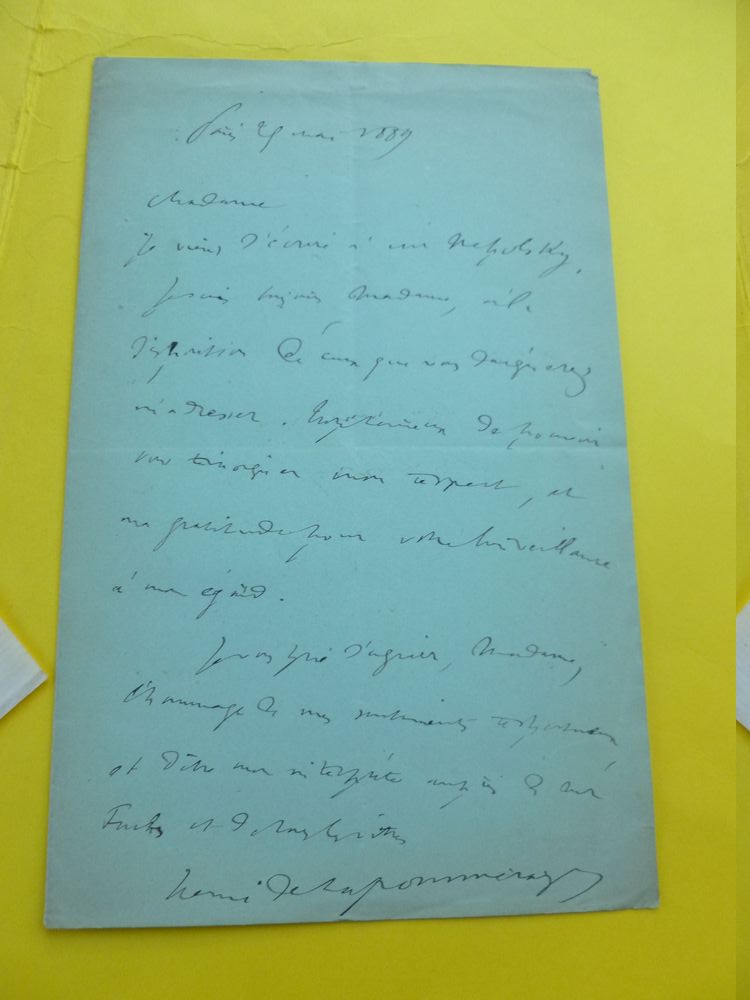 Paris 29 mai 1889
Madame
Je viens d'écrire à Nepolsky.
Je suis toujours Madame, à la
disposition de ceux que vous daignerez
m'adresser. Trop heureux de pouvoir
vous témoigner mon respect, et
ma gratitude pour votre bienveillance
à mon égard.
Je vous prie d'agréer, Madame,
l'hommage de mes sentiments respectueux
et d'être mon interprète auprès de
et
Henri de Lapommeraye